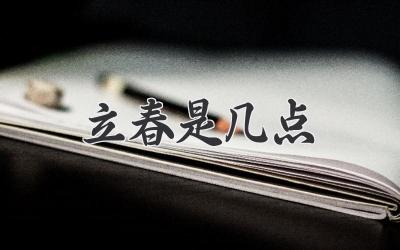 立春是几点